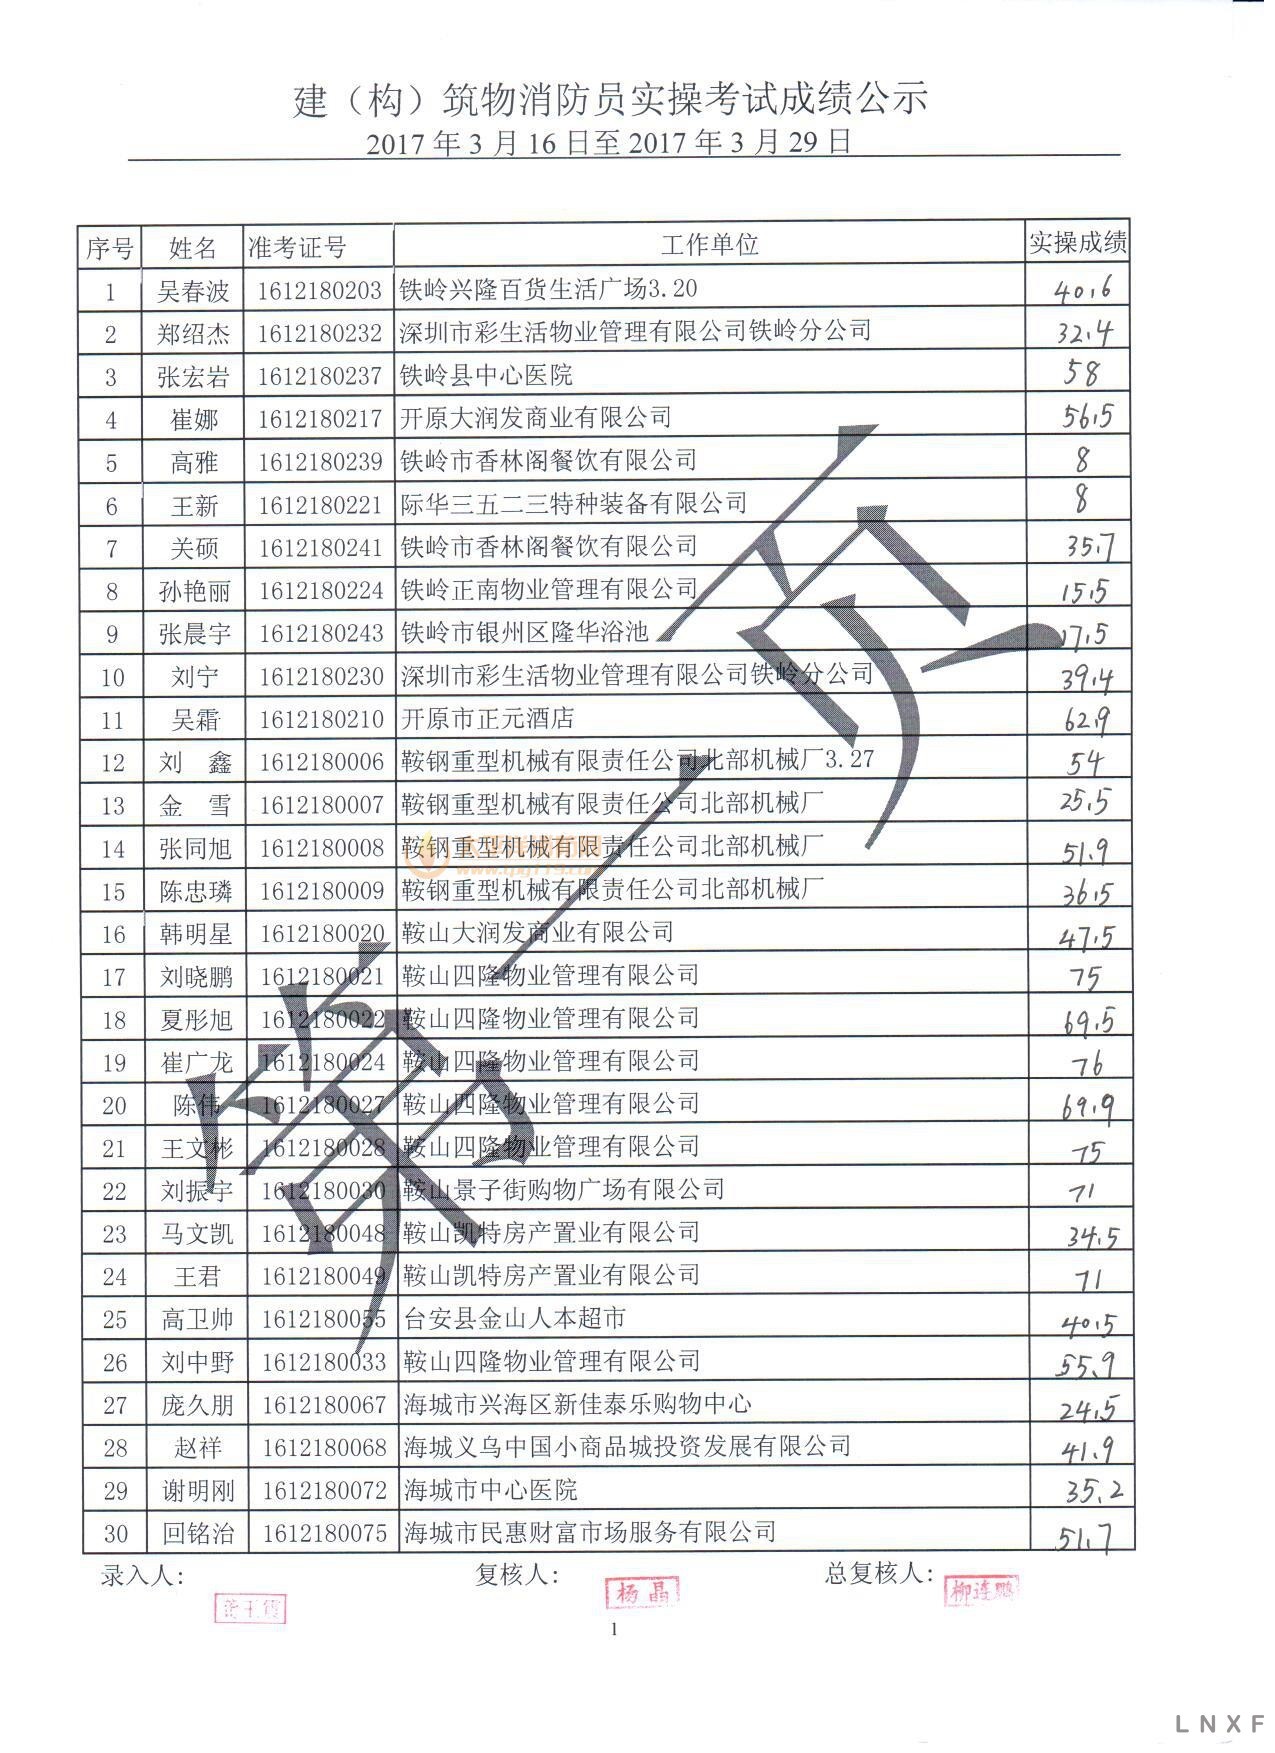 建（构）筑物消防员实操考试成绩公示
2017 年 3 月 16 日至 2017 年 3 月 29 日
序号 姓名 准考证号 工作单位 实操成绩
1 吴春波 1612180203 铁岭兴隆百货生活广场3.20 40.6
2 郑绍杰 1612180232 深圳市彩生活物业管理有限公司铁岭分公司 32.4
3 张宏岩 1612180237 铁岭县中心医院 58
4 崔娜 1612180217 开原大润发商业有限公司 56.5
5 高雅 1612180239 铁岭市香林阁餐饮有限公司 8
6 王新 1612180221 际华三五二三特种装备有限公司 8
7 关硕 1612180241 铁岭市香林阁餐饮有限公司 35.7
8 孙艳丽 1612180224 铁岭正南物业管理有限公司 15.5
9 张晨宇 1612180243 铁岭市银州区隆华浴池 17.5
10 刘宁 1612180230 深圳市彩生活物业管理有限公司铁岭分公司 39.4
11 吴霜 1612180210 开原市正元酒店 62.9
12 刘　鑫 1612180006 鞍钢重型机械有限责任公司北部机械厂3.27 54
13 金　雪 1612180007 鞍钢重型机械有限责任公司北部机械厂 25.5
14 张同旭 1612180008 鞍钢重型机械有限责任公司北部机械厂 51.9
15 陈忠璘 1612180009 鞍钢重型机械有限责任公司北部机械厂 36.5
16 韩明星 1612180020 鞍山大润发商业有限公司 47.5
17 刘晓鹏 1612180021 鞍山四隆物业管理有限公司 75
18 夏彤旭 1612180022 鞍山四隆物业管理有限公司 69.5
19 崔广龙 1612180024 鞍山四隆物业管理有限公司 76
20 陈伟 1612180027 鞍山四隆物业管理有限公司 69.9
21 王文彬 1612180028 鞍山四隆物业管理有限公司 75
22 刘振宇 1612180030 鞍山景子街购物广场有限公司 71
23 马文凯 1612180048 鞍山凯特房产置业有限公司 34.5
24 王君 1612180049 鞍山凯特房产置业有限公司 71
25 高卫帅 1612180055 台安县金山人本超市 40.5
26 刘中野 1612180033 鞍山四隆物业管理有限公司 55.9
27 庞久朋 1612180067 海城市兴海区新佳泰乐购物中心 24.5
28 赵祥 1612180068 海城义乌中国小商品城投资发展有限公司 41.9
29 谢明刚 1612180072 海城市中心医院 35.2
30 回铭治 1612180075 海城市民惠财富市场服务有限公司 51.7
第一页
录入人： 复核人： 总复核人：
杨晶 柳连鹏
1
LNXF